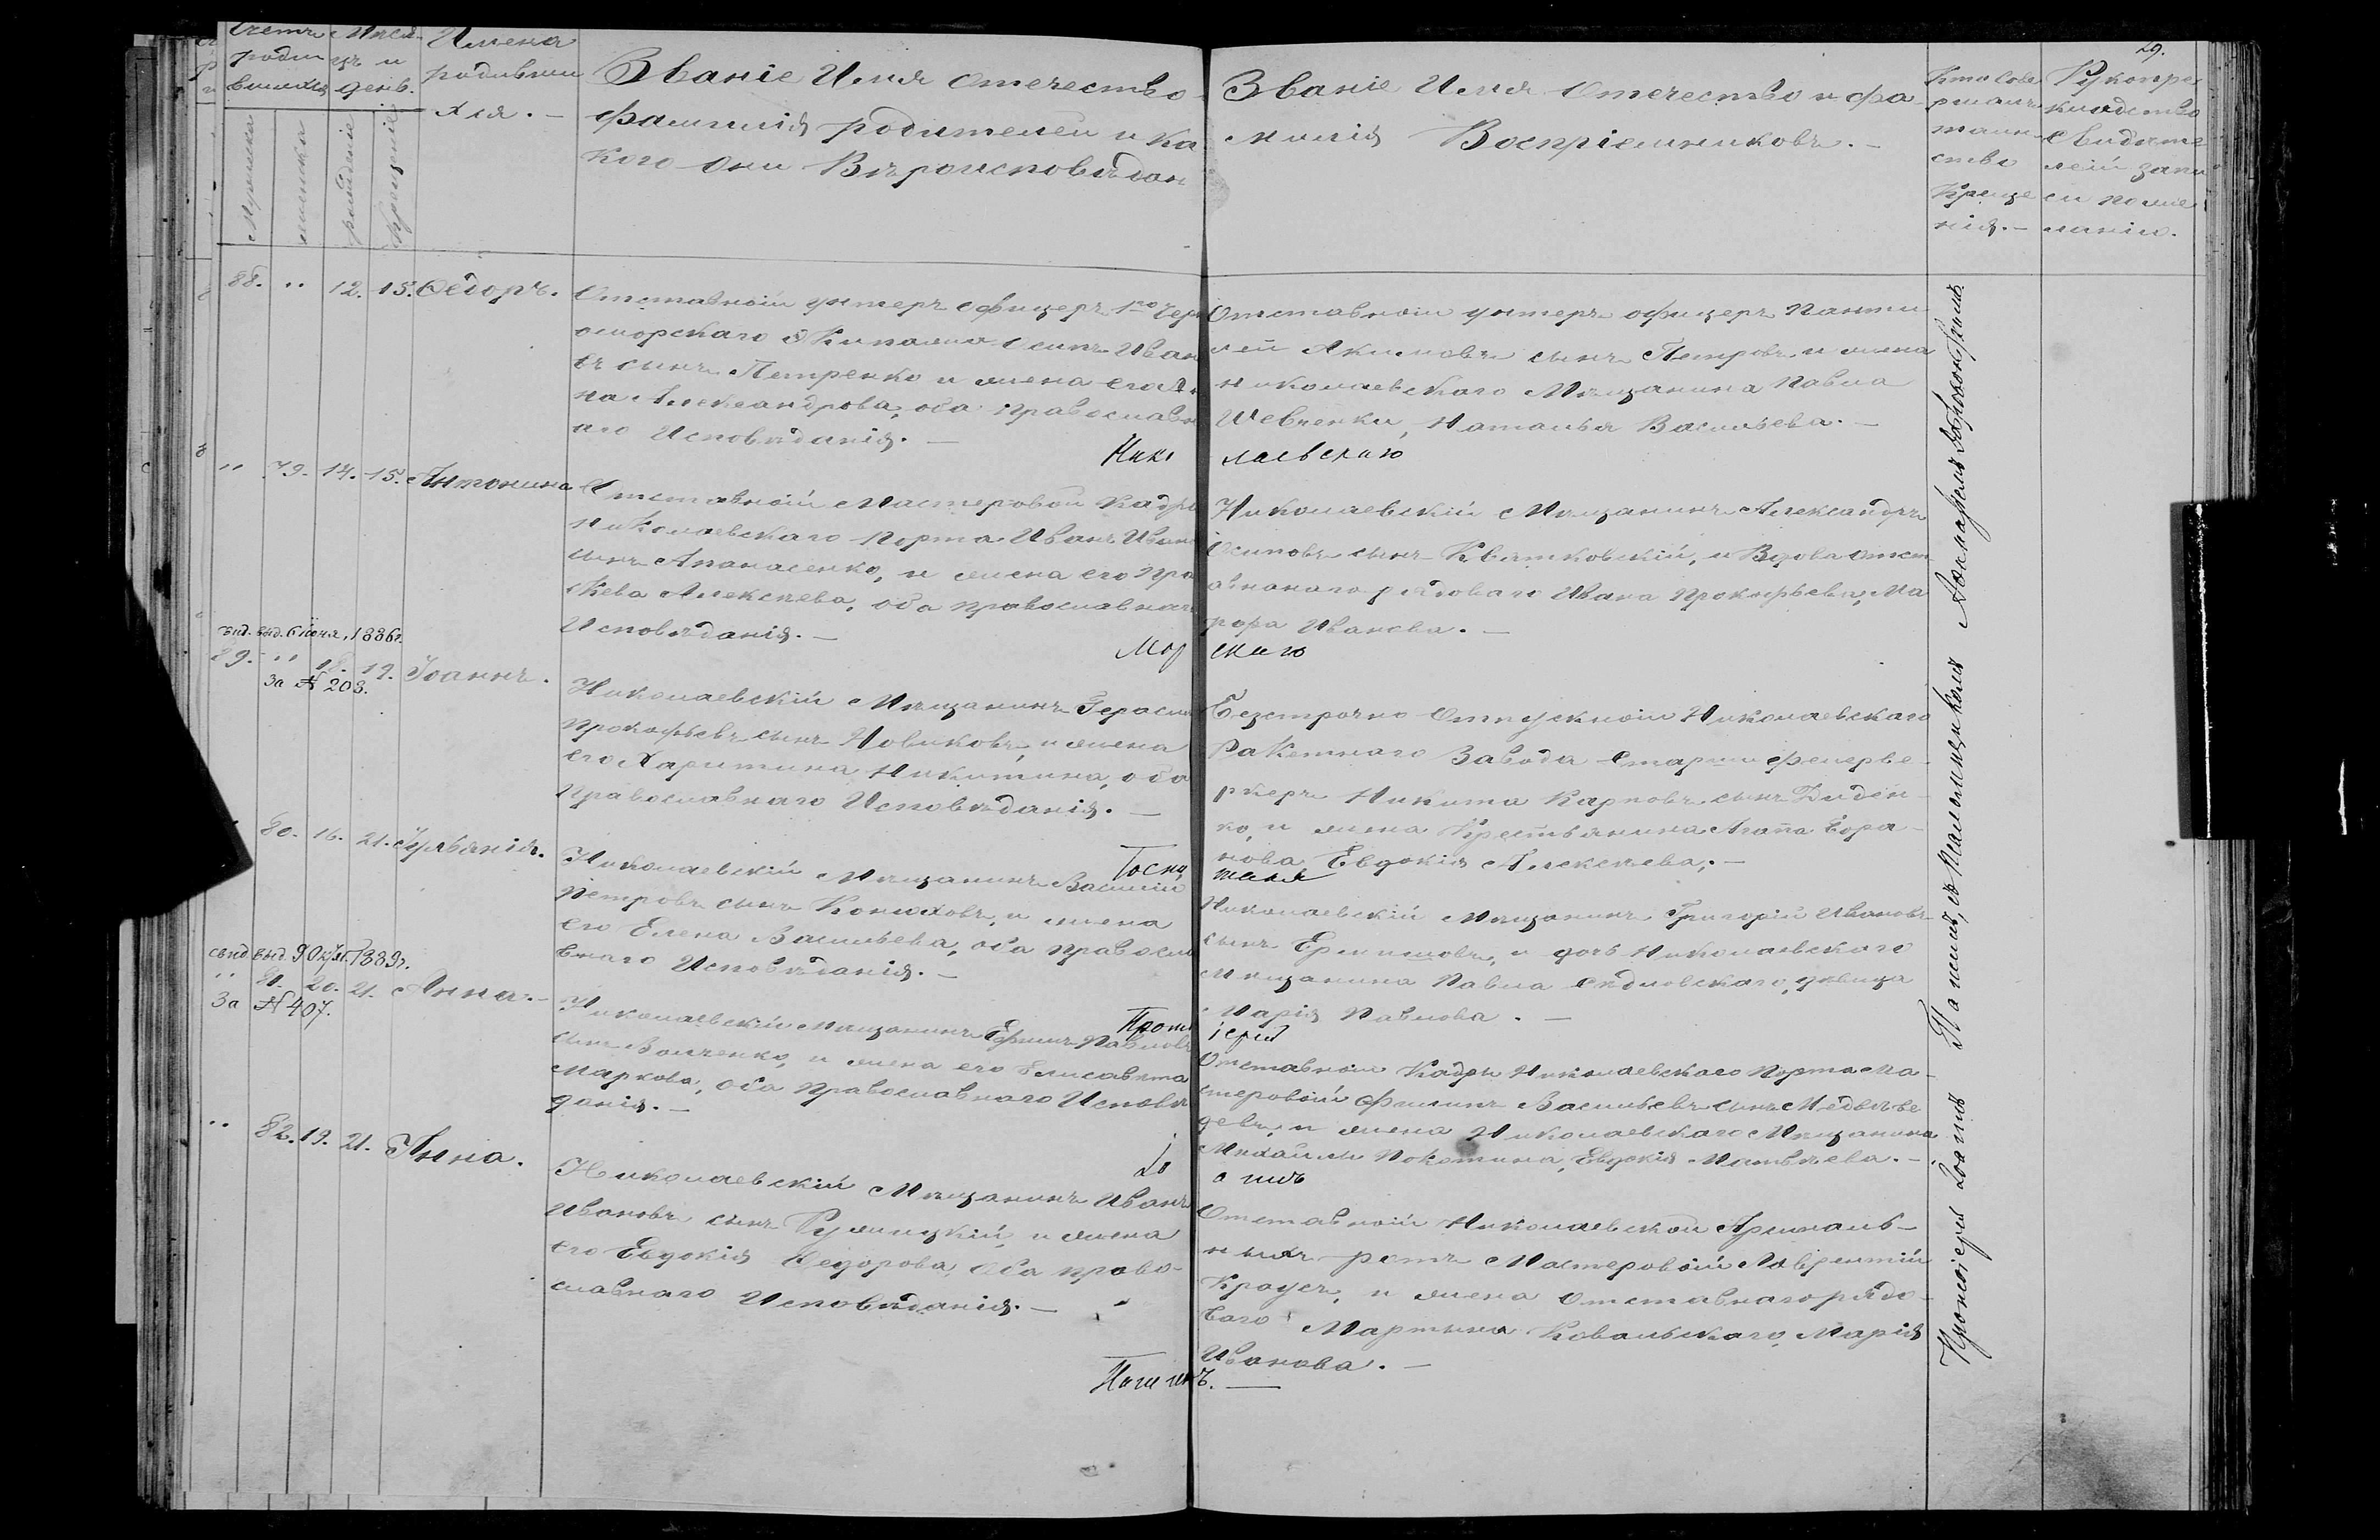 29.
Счетъ родившихся
Мѣсяцъ и день.
Имена родившихся. —
Званіе Имя Отечество
фамилія родителей и ка
кого они Вѣроисповѣдан
Званіе Имя Отечество и фа
милія Воспріемниковъ. —
Кто совершалъ таинство Крещенія. —
Рукоприкладство свидѣтелей записи по желанію.
Мужеска
женска
рожденіе
крещеніе
88. " 12. 15. Ѳедоръ.
Отставной унтеръ офицеръ 1го Черн
оморскаго Экипажа Осипъ Иван
въ сынъ Петренко и жена его Ан
на Александрова, оба православн
аго Исповѣданія. —
Отставной унтеръ офицеръ Панти
лей Акимовъ сынъ Петровъ и жена
николаевскаго Мѣщанина Павла
Шевченки, Наталья Васильева. —
Нико лаевскаго
" 79. 14. 15. Антонина
Отставной Мастеровой Кадры
Николаевскаго Порта Иванъ Ивано
сынъ Апанасенко, и жена его Пра
скева Алексѣева, оба православнаго
Исповѣданія. —
Николаевскій Мѣщанинъ Александръ
Осиповъ сынъ Квятковскій, и Вдова отст
авнаго рядоваго Ивана Прокофьева, Ма
Иванова. —
Мор скаго
выд. 6 Іюня, 1886г.
89. " 18. 19. Іоаннъ.
За № 203.
Николаевскій Мѣщанинъ Герасим
Прокофьевъ сынъ Новиковъ, и жена
его Харитина Никитина, оба
Православнаго Исповѣданія. —
Безсрочно отпускной Николаевскаго
Ракетнаго Завода Старши фейерве
ркеръ Никита Карповъ сынъ Диден
ко, и жена Крестьянина Агапа
Евдокія Алексѣева. —
Госпи таля
80. 16. 21. Іуліанія.
Николаевскій Мѣщанинъ Василій
Петровъ сынъ Конюховъ, и жена
его Елена Васильева, оба Правосла
внаго Исповѣданія. —
Николаевскій Мѣщанинъ Григорій Ивановъ
сынъ Ермиловъ, и дочь Николаевскаго
Мѣщанина Павла Сѣдловскаго, дѣвица
Марія Павлова. —
Прото іерей
свид. выд. 9 Окт. 1889г.
" 81. 20. 21. Анна. —
За № 407.
Николаевскій Мѣщанинъ Ефимъ Павловъ
сынъ Волченко, и жена его Елисавета
Маркова, Оба Православнаго Исповѣ
данія. —
Отставной Кадры Николаевскаго Порта Ма
стеровой Филипъ Васильевъ сынъ Медвѣ
девъ, и жена Николаевскаго Мѣщанина
Михайлы Евдокія Матвѣева. —
Іо аннъ
" 82. 19. 21. Анна.
Николаевскій Мѣщанинъ Иванъ
Ивановъ сынъ и жена
его Евдокія Ѳедорова, Оба право-
славнаго Исповѣданія. —
Отставной Николаевской Арсеналь-
ныхъ ротъ Мастеровой Лаврентій
Краусъ, и жена Отставнаго рядо-
ваго Мартына Ковальскаго, Марія
Иванова. —
Протоіерей Іоаннъ съ Псаломщикомъ